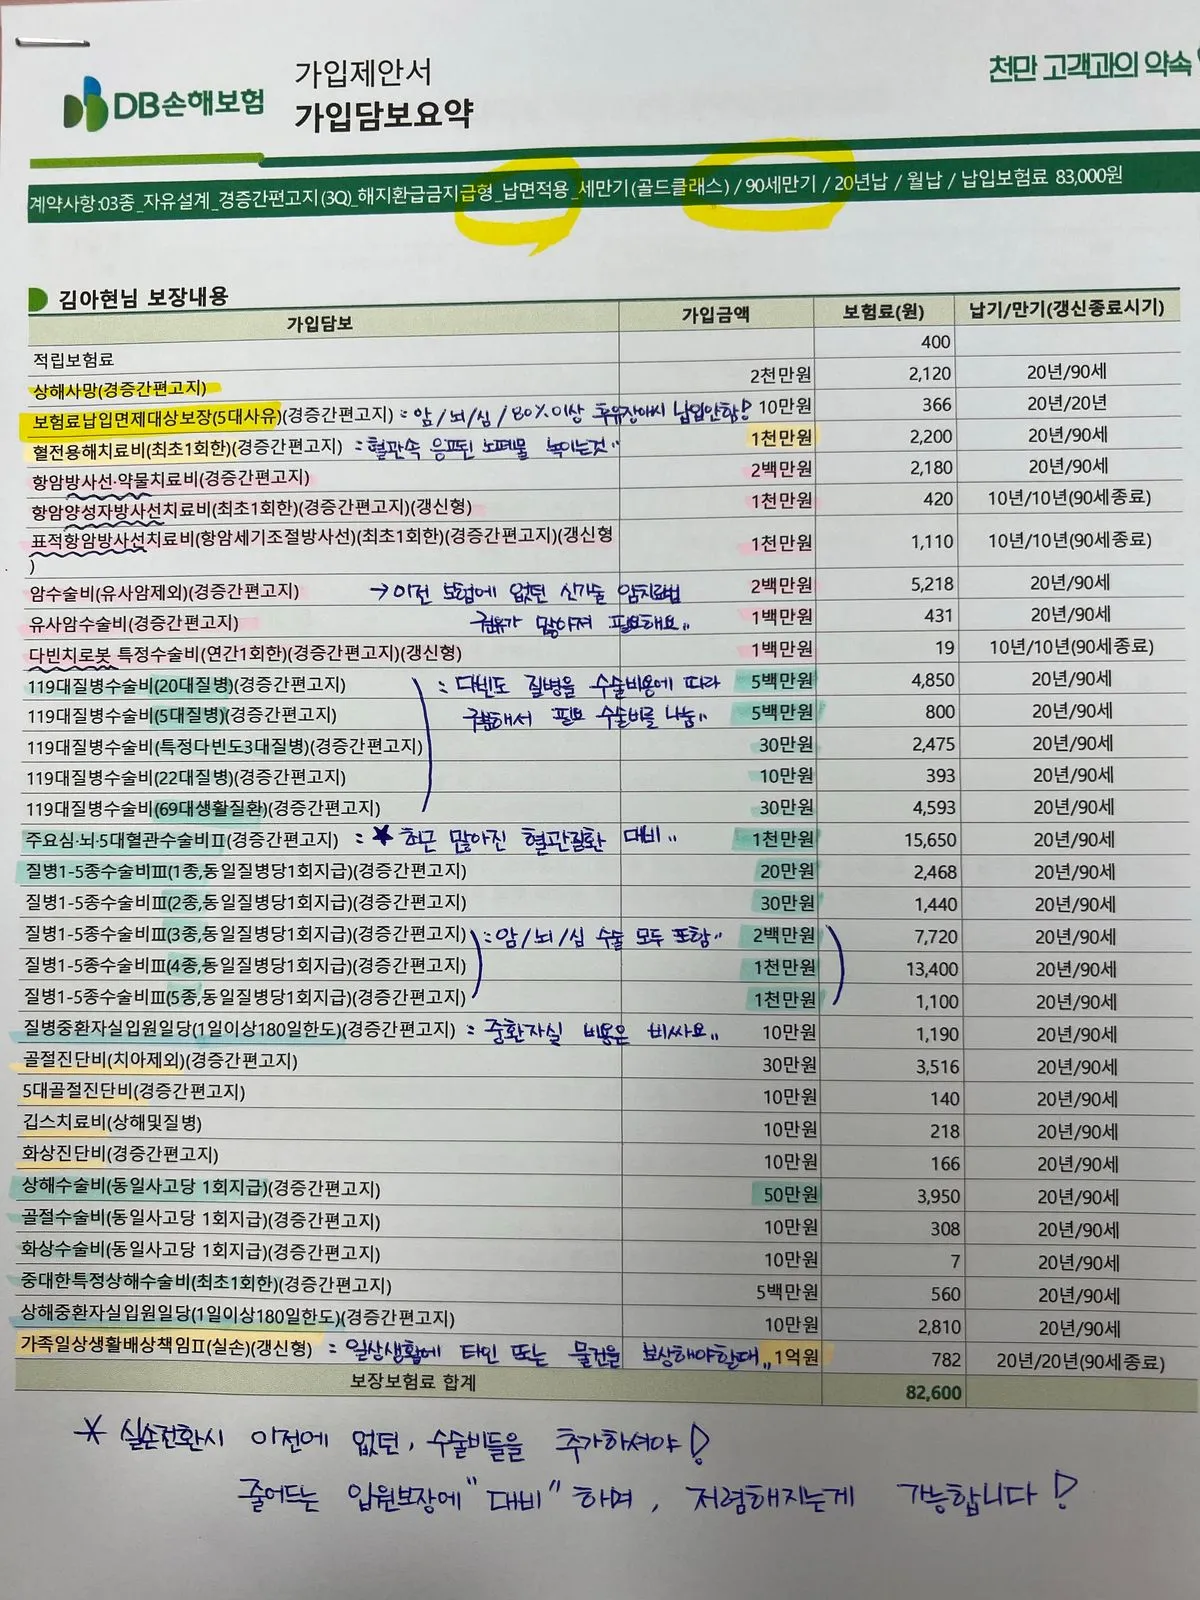 DB손해보험
가입제안서
가입담보요약
천만 고객과의 약속
계약사항:03종_자유설계_경증간편고지(3Q)_해지환급금지급형_납면적용_세만기(골드클래스) / 90세만기 / 20년납 / 월납 / 납입보험료 83,000원
김아현님 보장내용
가입담보 가입금액 보험료(원) 납기/만기(갱신종료시기)
적립보험료 400
상해사망(경증간편고지) 2천만원 2,120 20년/90세
보험료납입면제대상보장(5대사유)(경증간편고지) : 암/뇌/심/80%이상 후유장애시 납입안함! 10만원 366 20년/20년
혈전용해치료비(최초1회한)(경증간편고지) : 혈관속 응고된 노폐물 녹이는것" 1천만원 2,200 20년/90세
항암방사선·약물치료비(경증간편고지) 2백만원 2,180 20년/90세
항암양성자방사선치료비(최초1회한)(경증간편고지)(갱신형) 1천만원 420 10년/10년(90세종료)
표적항암방사선치료비(항암세기조절방사선)(최초1회한)(경증간편고지)(갱신형 1천만원 1,110 10년/10년(90세종료)
)
암수술비(유사암제외)(경증간편고지) →이전 보험에 없던 신기술 암치료법 2백만원 5,218 20년/90세
유사암수술비(경증간편고지) 권유가 많아져 필요해요.. 1백만원 431 20년/90세
다빈치로봇 특정수술비(연간1회한)(경증간편고지)(갱신형) 1백만원 19 10년/10년(90세종료)
119대질병수술비(20대질병)(경증간편고지) : 다빈도 질병을 수술비용에 따라 5백만원 4,850 20년/90세
119대질병수술비(5대질병)(경증간편고지) 구분해서 필요 수술비를 나눔" 5백만원 800 20년/90세
119대질병수술비(특정다빈도3대질병)(경증간편고지) 30만원 2,475 20년/90세
119대질병수술비(22대질병)(경증간편고지) 10만원 393 20년/90세
119대질병수술비(69대생활질환)(경증간편고지) 30만원 4,593 20년/90세
주요심·뇌·5대혈관수술비Ⅱ(경증간편고지) : ★ 최근 많아진 혈관질환 대비" 1천만원 15,650 20년/90세
질병1-5종수술비Ⅲ(1종,동일질병당1회지급)(경증간편고지) 20만원 2,468 20년/90세
질병1-5종수술비Ⅲ(2종,동일질병당1회지급)(경증간편고지) 30만원 1,440 20년/90세
질병1-5종수술비Ⅲ(3종,동일질병당1회지급)(경증간편고지) : 암/뇌/심 수술 모두 포함" 2백만원 7,720 20년/90세
질병1-5종수술비Ⅲ(4종,동일질병당1회지급)(경증간편고지) 1천만원 13,400 20년/90세
질병1-5종수술비Ⅲ(5종,동일질병당1회지급)(경증간편고지) 1천만원 1,100 20년/90세
질병중환자실입원일당(1일이상180일한도)(경증간편고지) : 중환자실 비용은 비싸요.. 10만원 1,190 20년/90세
골절진단비(치아제외)(경증간편고지) 30만원 3,516 20년/90세
5대골절진단비(경증간편고지) 10만원 140 20년/90세
깁스치료비(상해및질병) 10만원 218 20년/90세
화상진단비(경증간편고지) 10만원 166 20년/90세
상해수술비(동일사고당 1회지급)(경증간편고지) 50만원 3,950 20년/90세
골절수술비(동일사고당 1회지급)(경증간편고지) 10만원 308 20년/90세
화상수술비(동일사고당 1회지급)(경증간편고지) 10만원 7 20년/90세
중대한특정상해수술비(최초1회한)(경증간편고지) 5백만원 560 20년/90세
상해중환자실입원일당(1일이상180일한도)(경증간편고지) 10만원 2,810 20년/90세
가족일상생활배상책임Ⅱ(실손)(갱신형) : 일상생활에 타인 또는 물건을 보상해야할때" 1억원 782 20년/20년(90세종료)
보장보험료 합계 82,600
* 실손전환시 이전에 없던, 수술비들을 추가하셔야!
줄어드는 입원보장에 "대비" 하며, 저렴해지는게 가능합니다!